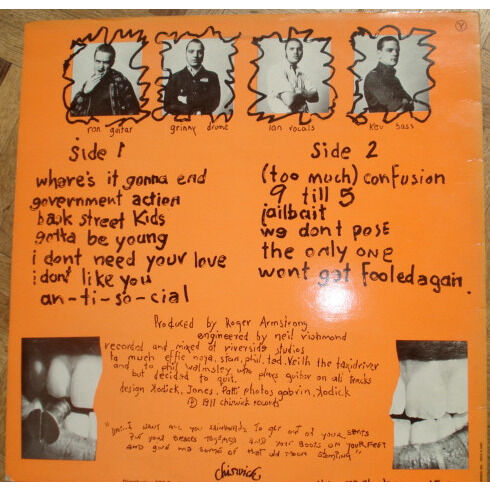 ron guitar
grinny drums
ian vocals
kev bass
Side 1
where's it gonna end
government action
back street Kids
gotta be young
i dont need your love
i dont like you
an-ti-so-cial
Side 2
(too much) confusion
9 till 5
jailbait
we dont pose
the only one
wont get fooled again.
Produced by Roger Armstrong
engineered by neil richmond
recorded and mixed at riverside studios
ta much effie noya, stan, phil. ted. Keith the taxidriver
and to phil walmsley who plays guitar on all tracks
but decided to quit.
design Kodick, Jones, Patti photos gobvin, Kodick
℗ 1911 chiswick records
I want all you skinheads to get out of your seats
put your braces together and your boots on your feet
and give me some of that old moon stomping"
chiswick